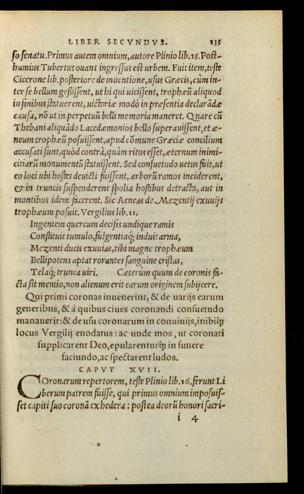 LIBER SECVNDVS. 135
so senatu. Primus autem omnium, autore Plinio lib. 15. Post-
humius Tubertus ouans ingressus est urbem. Fuit item, teste
Cicerone lib. posteriore de inuentione, usus Græcis, cũm in-
ter se bellum gessissent, ut hi qui uicissent, trophæũ aliquod
in finibus statuerent, uictoriæ modò in præsentia declarãdæ
causa, nõ ut in perpetuũ belli memoria maneret. Quare cũ
Thebani aliquãdo Lacedæmonios bello superauissent, et æ-
neum trophæũ posuissent, apud cõmune Græciæ concilium
accusati sunt, quòd contrà, quàm ritus esset, æternum inimi-
citiarũ monumentũ statuissent. Sed consuetudo uetus fuit, ut
eo loci ubi hostes deuicti fuissent, arborũ ramos inciderent,
& in truncis suspenderent spolia hostibus detracta, aut in
montibus idem facerent. Sic Aeneas de Mezentij exuuijs
trophæum posuit. Vergilius lib. 11.
Ingentem quercum decisis undique ramis
Constituit tumulo, fulgentiaq; induit arma,
Mezenti ducis exuuias, tibi magne trophæum
Bellipotens aptat rorantes sanguine cristas,
Telaq; trunca uiri. Cæterum quum de coronis fa-
cta sit mentio, non alienum erit earum originem subijcere.
Qui primi coronas inuenerint, & de uarijs earum
generibus, & à quibus ciues coronandi consuetudo
manauerit: & de usu coronarum in conuiuijs, inibiq;
locus Vergilij enodatus: ac unde mos, ut coronati
supplicarent Deo, epularenturq; in funere
faciundo, ac spectarent ludos.
CAPVT XVII.
Coronarum repertorem, teste Plinio lib. 16. ferunt Li
berum patrem fuisse, qui primus omnium imposuis-
set capiti suo coronã ex hedera: postea deorũ honori sacri-
i 4